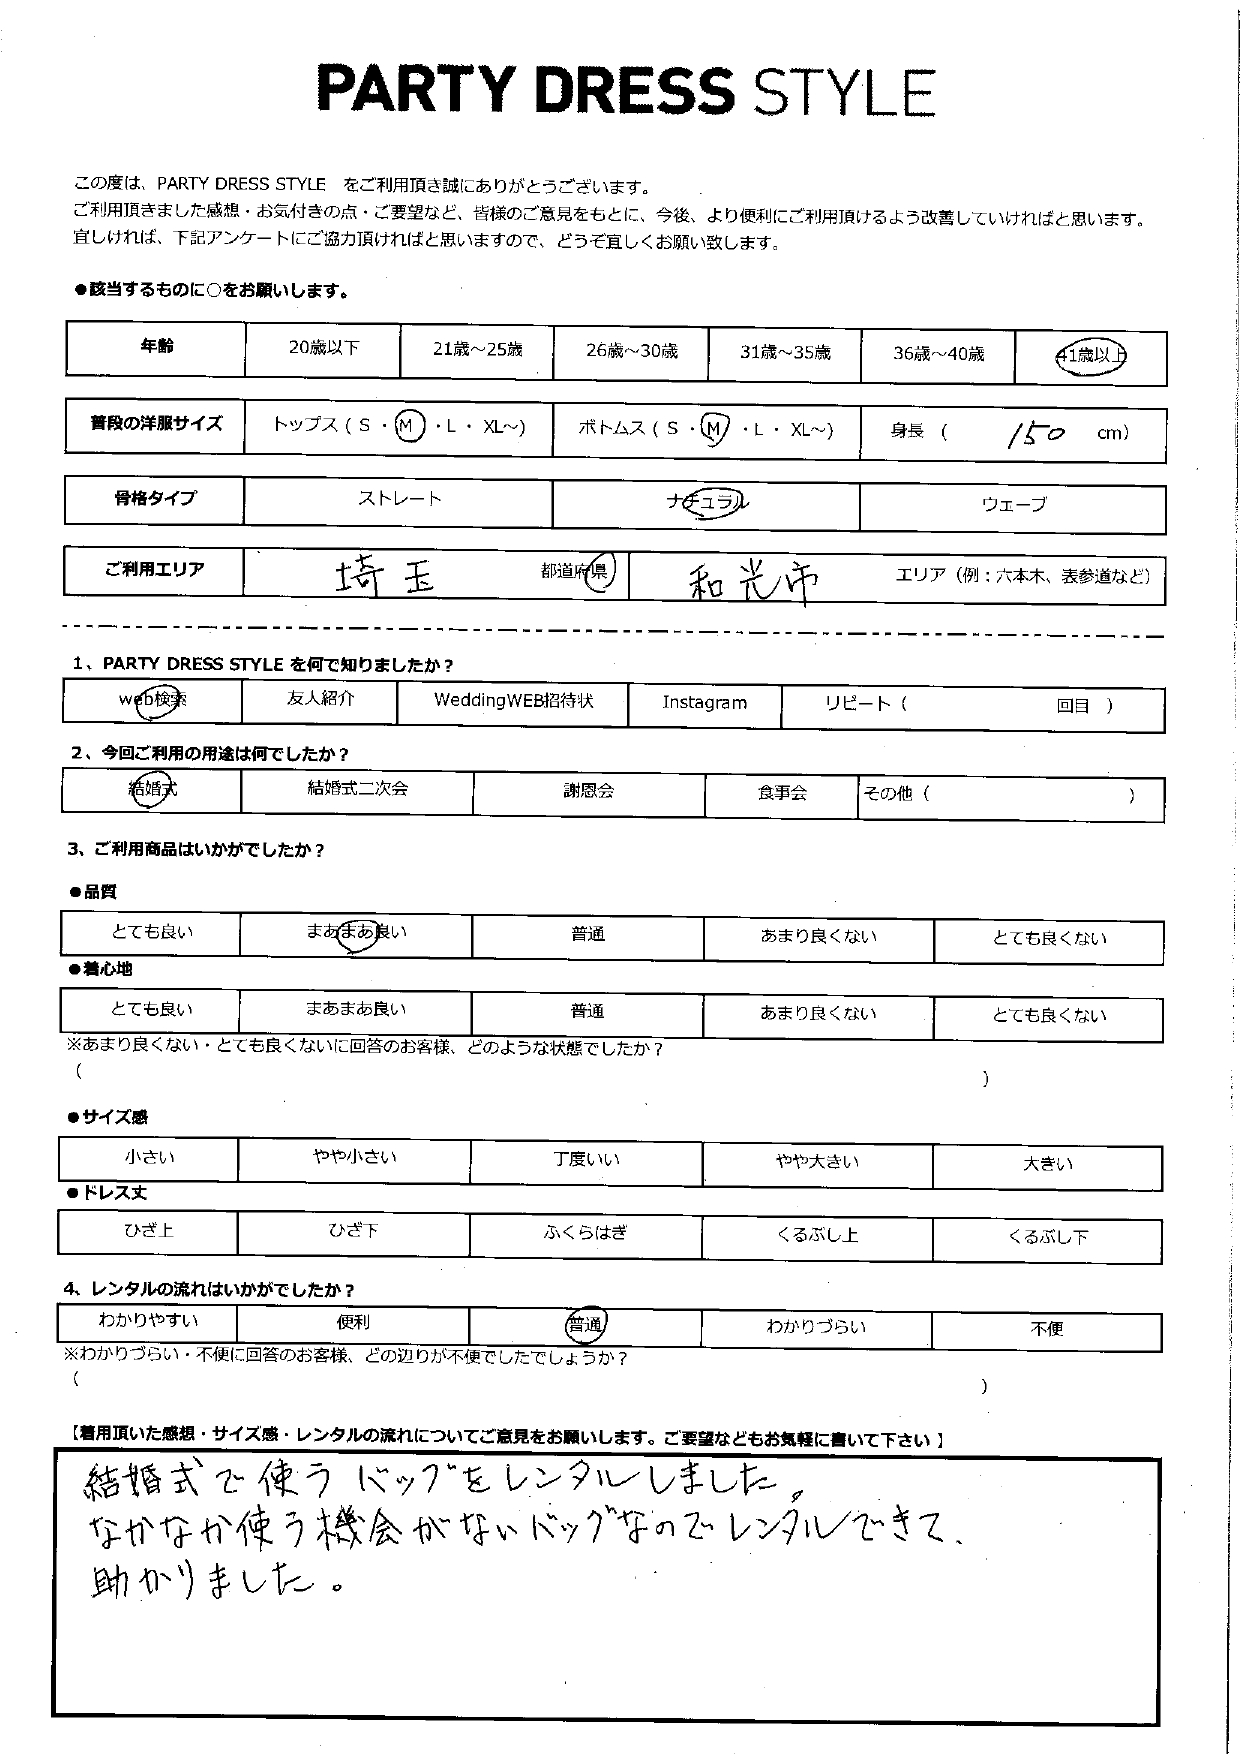 PARTY DRESS STYLE
この度は、PARTY DRESS STYLE をご利用頂き誠にありがとうございます。
ご利用頂きました感想・お気付きの点・ご要望など、皆様のご意見をもとに、今後、より便利にご利用頂けるよう改善していければと思います。
宜しければ、下記アンケートにご協力頂ければと思いますので、どうぞ宜しくお願い致します。
●該当するものに○をお願いします。
年齢 20歳以下 21歳～25歳 26歳～30歳 31歳～35歳 36歳～40歳 41歳以上
普段の洋服サイズ トップス ( S ・ M ・ L ・ XL～) ボトムス ( S ・ M ・ L ・ XL～) 身長 ( 150 cm)
骨格タイプ ストレート ナチュラル ウェーブ
ご利用エリア 埼玉 都道府県 和光市 エリア (例：六本木、表参道など)
1、PARTY DRESS STYLE を何で知りましたか？
web検索 友人紹介 WeddingWEB招待状 Instagram リピート ( 回目 )
2、今回ご利用の用途は何でしたか？
結婚式 結婚式二次会 謝恩会 食事会 その他 ( )
3、ご利用商品はいかがでしたか？
●品質
とても良い まあまあ良い 普通 あまり良くない とても良くない
●着心地
とても良い まあまあ良い 普通 あまり良くない とても良くない
※あまり良くない・とても良くないに回答のお客様、どのような状態でしたか？
( )
●サイズ感
小さい やや小さい 丁度いい やや大きい 大きい
●ドレス丈
ひざ上 ひざ下 ふくらはぎ くるぶし上 くるぶし下
4、レンタルの流れはいかがでしたか？
わかりやすい 便利 普通 わかりづらい 不便
※わかりづらい・不便に回答のお客様、どの辺りが不便でしたでしょうか？
( )
【着用頂いた感想・サイズ感・レンタルの流れについてご意見をお願いします。ご要望などもお気軽に書いて下さい】
結婚式で使うバッグをレンタルしました。
なかなか使う機会がないバッグなのでレンタルできて、
助かりました。